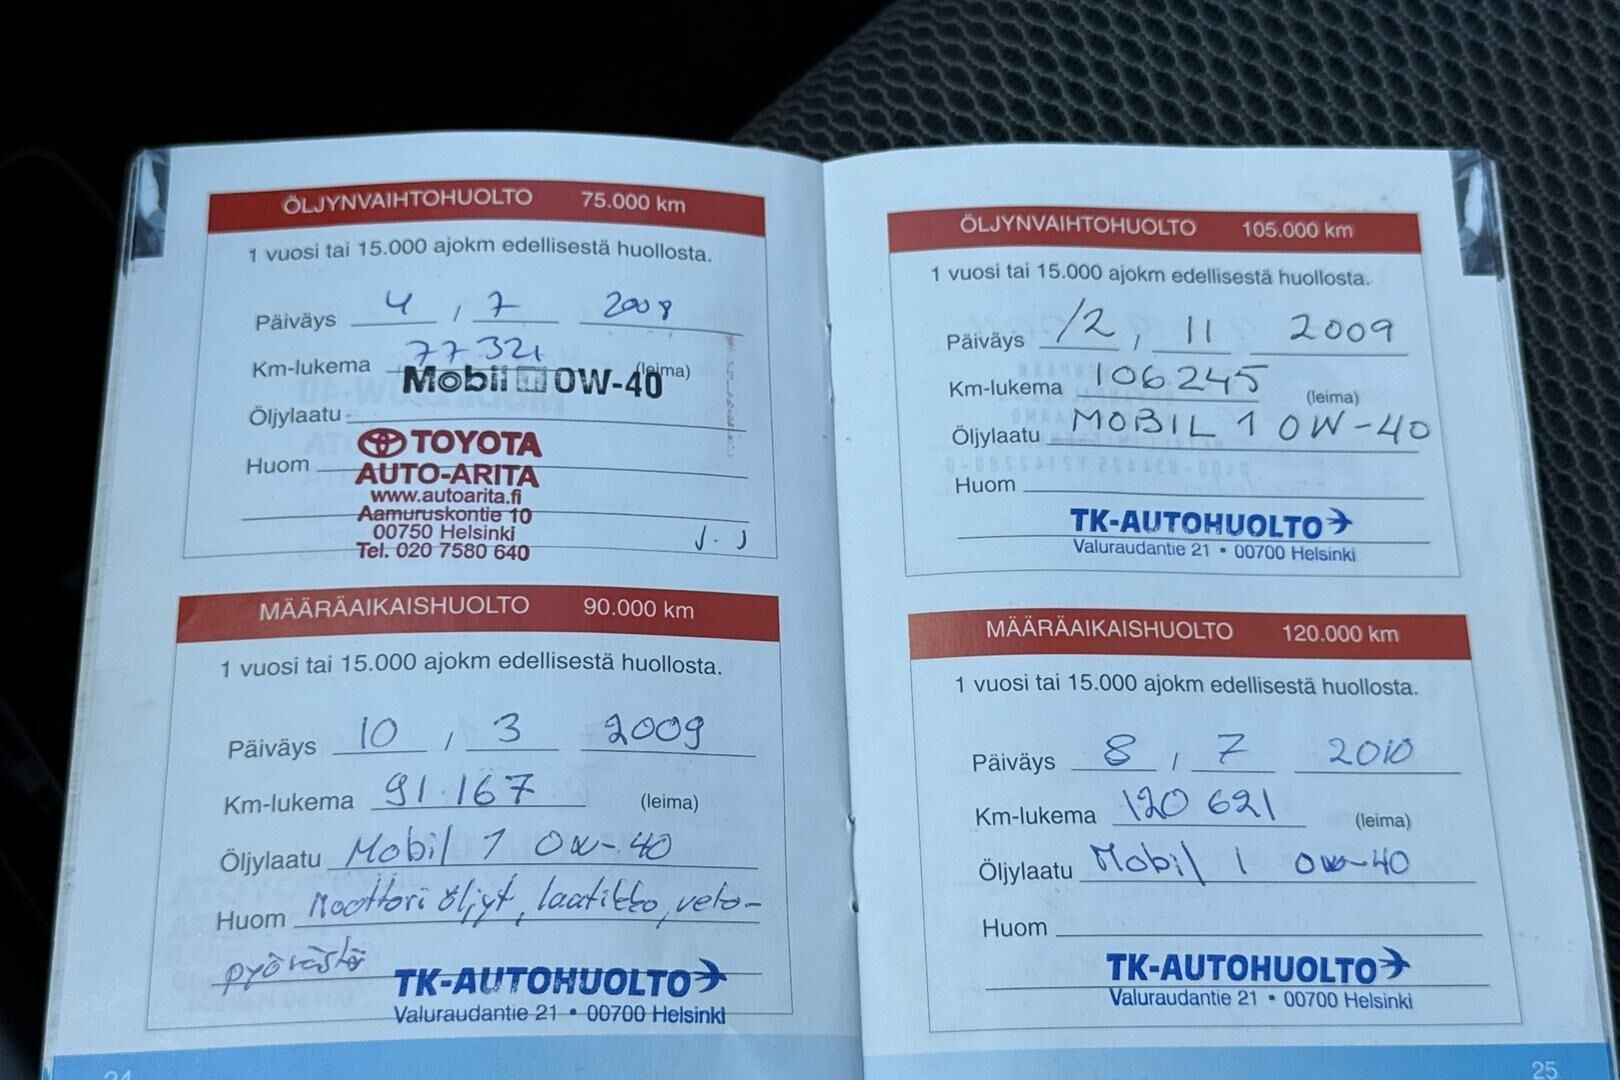 ÖLJYNVAIHTOHUOLTO 75.000 km
1 vuosi tai 15.000 ajokm edellisestä huollosta.
Päiväys 4 / 7 2008
Km-lukema 77321 (leima)
Mobil 1 0W-40
Öljylaatu
TOYOTA
Huom AUTO-ARITA
www.autoarita.fi
Aamuruskontie 10
00750 Helsinki
Tel. 020 7580 640
J.J
MÄÄRÄAIKAISHUOLTO 90.000 km
1 vuosi tai 15.000 ajokm edellisestä huollosta.
Päiväys 10 / 3 2009
Km-lukema 91 167 (leima)
Öljylaatu Mobil 1 0w-40
Huom Moottori öljyt, laatikko, veto-
pyörästö TK-AUTOHUOLTO
Valuraudantie 21 • 00700 Helsinki
24
ÖLJYNVAIHTOHUOLTO 105.000 km
1 vuosi tai 15.000 ajokm edellisestä huollosta.
Päiväys 12 / 11 2009
Km-lukema 106245 (leima)
Öljylaatu MOBIL 1 0W-40
Huom
TK-AUTOHUOLTO
Valuraudantie 21 • 00700 Helsinki
MÄÄRÄAIKAISHUOLTO 120.000 km
1 vuosi tai 15.000 ajokm edellisestä huollosta.
Päiväys 8 / 7 2010
Km-lukema 120 621 (leima)
Öljylaatu Mobil 1 0w-40
Huom
TK-AUTOHUOLTO
Valuraudantie 21 • 00700 Helsinki
25